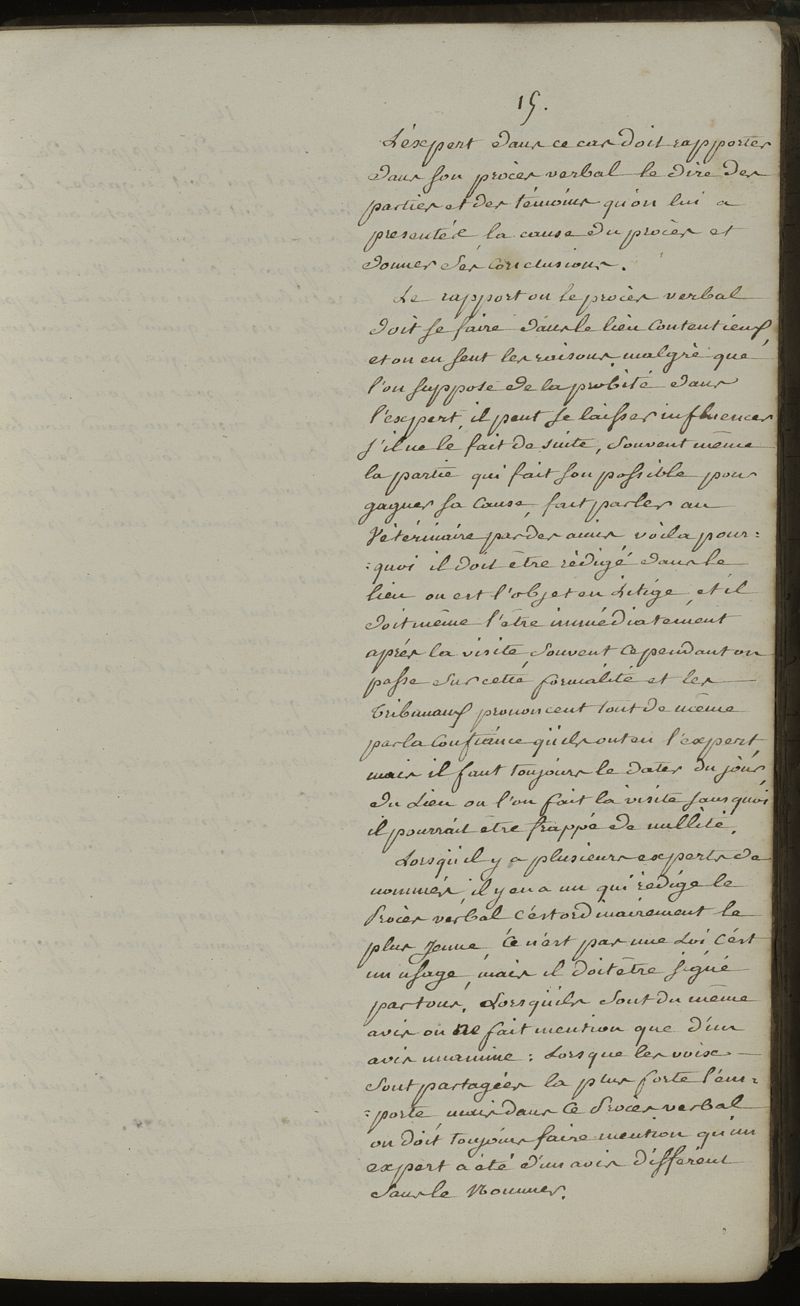 15.
L'éxpert dans ce cas doit rapporter
dans son procès verbal le dire des
parties et des témoins qu'on lui a
presentés la cause du procès et
donner ses conclusions.
Le rapport ou le procès verbal
doit se faire dans le lieu contentieux
et on en sent les raisons, malgré que
l'on suppose de la probité dans
l'expert, il peut se laisser influencer
s'il ne le fait de suite, souvent même
la partie qui fait son possible pour
gagner sa cause, fait parler au
Vétérinaire par des amis, voila pour=
=quoi il doit être rédigé dans le
lieu ou est l'objet en Litige, et il
doit même l'être immédiatement
aprés la visite, souvent cependant on
passe sur cette formalité et les
Tribunaux prononcent tout de même
par la confiance qu'ils ont en l'expert,
mais il faut toujours le dater du jour,
du Lieu ou l'on fait la visite sans quoi
il pourrait être frappé de nullité.
Lorsqu'il y a plusieurs experts de
nommés, il y en a un qui rédige le
Procès verbal c'est ordinairement le
plus Jeune. Ce n'est pas une Loi c'est
un usage, mais il doit être signé
par tous. Lorsqu'ils sont du même
avis on ne fait mention que d'un
avis unanime: Lorsque les voix
sont partagées la plus forte l'em=
=porte mais dans ce Procès verbal
on doit toujours faire mention qu'un
expert a été d'un avis différent
sans le Nommer.